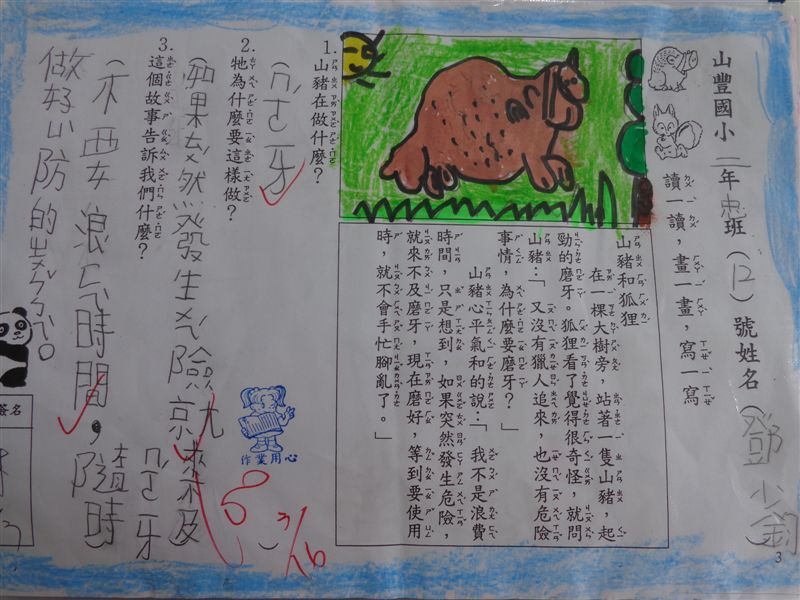 山豐國小二年忠班（12）號姓名（鄧小鈞）
讀一讀，畫一畫，寫一寫
山豬和狐狸
在一棵大樹旁，站著一隻山豬，起
勁的磨牙。狐狸看了覺得很奇怪，就問
山豬：「又沒有獵人追來，也沒有危險
事情，為什麼要磨牙？」
山豬心平氣和的說：「我不是浪費
時間，只是想到，如果突然發生危險，
就來不及磨牙，現在磨好，等到要使用
時，就不會手忙腳亂了。」
1.山豬在做什麼？
（ㄇㄛˊ牙
2.牠為什麼要這樣做？
（如果ㄊㄨˊ然發生ㄨㄟˊ險就來不及
ㄇㄛˊ牙）
3.這個故事告訴我們什麼？
（不要浪ㄈㄟˋ時間，隨時
做好小防的
作業用心
3/16
簽名
3